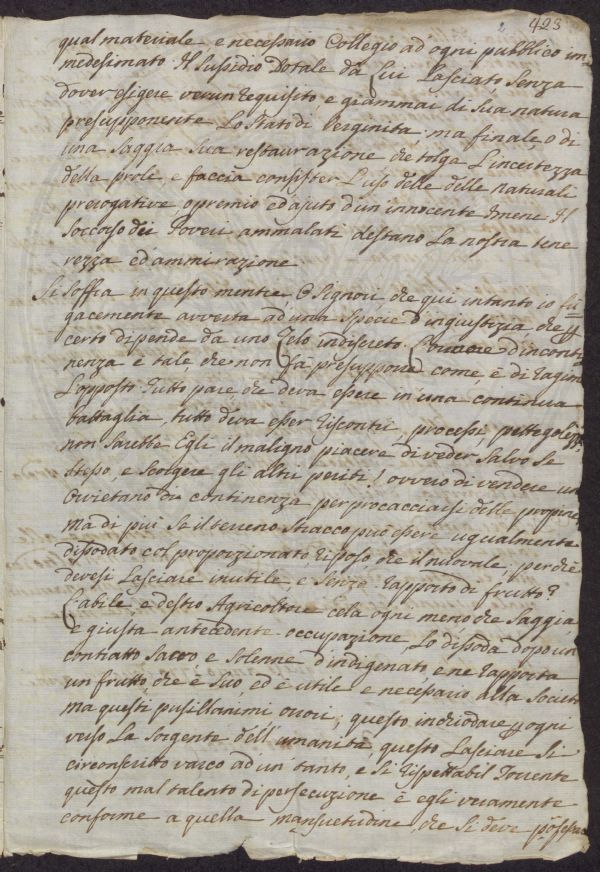 2 423
qual materiale e necessario Collegio ad ogni pubblico im
medesimato Il Sussidio Dotale da Lui Lasciato, Senza
dover esigere verun requisito e giammai di Sua natura
presupponente Lo Stato di Verginità, ma finale o di
una Saggia Sua restaurazione che tolga L'incertezza
della prole, e faccia consister L'uso delle delle naturali
prerogative o premio ed ajuto d'un innocente Imene Il
Soccorso dei Poveri ammalati destano La nostra tene
rezza ed ammirazione.
Si Soffra in questo mentre, O Signori che qui intanto io fu
gacemente avverta ad una Specie d'ingiustizia che p
certo dipende da uno Zelo indiscreto. d'inconti
nenza e tale che non Si fà presupporre come, è di ragion
L'opposto: tutto pare, che deva essere in una continua
battaglia, tutto deva esser riscontri, processi, pettegolezzi,
non Sarebbe Egli il maligno piacere di veder Salvo Se
stesso, e Scorgere gli altri periti! ovvero di vendere un
Orvietano di continenza per procacciarsi delle propine
Ma di più Se il terreno Stracco può essere ugualmente
dissodato col proporzionato riposo, che il nuovale; perchè
devesi Lasciare inutile e Senza rapporto di frutto?
L'abile, e destro Agricoltore cela ogni meno che Saggia,
e giusta antecedente occupazione, Lo dissoda dopo un
contratto Sacro, e Solenne d'indigenato, e ne rapporta
un frutto, che è Suo, ed è utile e necessario alla Società
Ma questi pusillanimi cuori; questo inchiodare p ogni
verso La Sorgente dell'umanità, questo Lasciare Si
circonscritto varco ad un tanto, e Si rispettabil Torrente
questo mal talento di persecuzione è egli veramente
conforme a quella mansuetudine, che Si deve